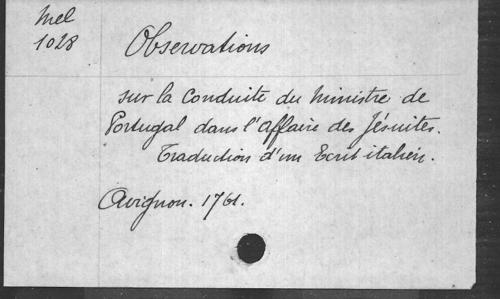 Mel
1028
Observations
sur la Conduite du Ministre de
Portugal dans l'Affaire des Jésuites.
Traduction d'un Ecrit italien.
Avignon. 1761.